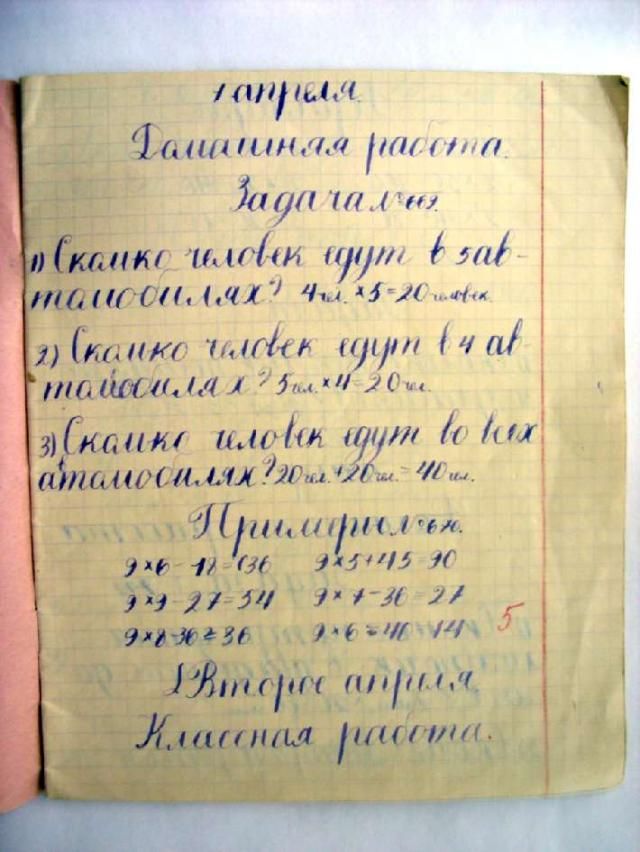 1 апреля.
Домашняя работа.
Задача № 669.
1) Сколько человек едут в 5 ав-
томобилях? 4 чел. × 5 = 20 человек.
2) Сколько человек едут в 4 ав-
томобилях? 5 чел. × 4 = 20 чел.
3) Сколько человек едут во всех
автомобилях? 20 чел. + 20 чел. = 40 чел.
Примеры № 670.
9×6-18=36 9×5+45=90
9×9-27=54 9×7-36=27
9×8-36=36 9×6=40+14
5
Второе апреля
Классная работа.